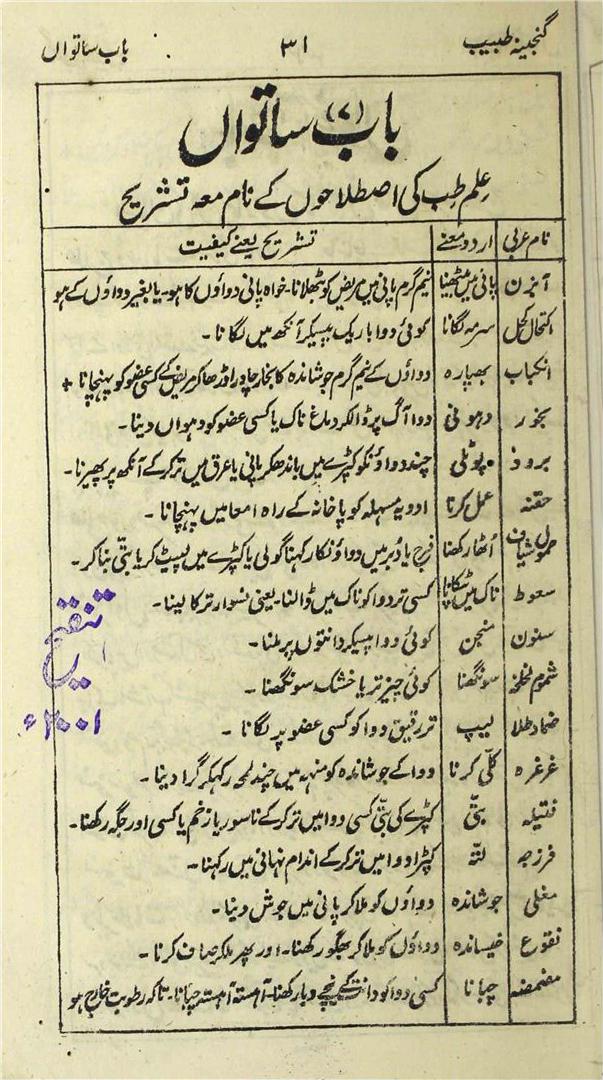 گنجینہ طبیب ۳۱ باب ساتواں
باب (۷) ساتواں
علم طب کی اصطلاحوں کے نام معہ تشریح
نام عربی اردو معنے تشریح یعنے کیفیت
آبزن پانی میں بٹھینا نیم گرم پانی میں مریض کو بٹھلانا۔ خواہ پانی دواؤں کا ہو۔ یا بغیر دواؤں کے ہو
اکتحال کحل سرمہ لگانا کوئی دوا باریک پیسکر آنکھ میں لگانا ۔
انکباب بھپارہ دواؤں کے نیم گرم جوشاندہ کا بخار چادر اوڈھا کر مریض کے کسی عضو کو پہنچانا +
بخور دہونی دوا آگ پر ڈالکر دماغ ناک یا کسی عضو کو دہواں دینا۔
برود پوٹلی چند دواؤنکو کپڑے میں باندھکر پانی یا عرق میں تر کر کے آنکھ پر پھیرنا۔
حقنہ عمل کرنا ادویہ مسہلہ کو پاخانہ کے راہ امعا میں پہنچانا ۔
حمول شیاف اُٹھا رکھنا فرج یا دُبر میں دواؤنکا رکھنا گولی یا کپڑے میں لپیٹ کر یا بتّی بنا کر۔
سعوط ناک میں ٹپکانا کسی تر دوا کو ناک میں ڈالنا۔ یعنی نسوار تر کا لینا۔
سنون منجن کوئی دوا پیسکر دانتوں پر ملنا۔
شموم لخلخہ سونگھنا کوئی چیز تر یا خشک سونگھنا ۔
ضماد طلا لیپ تر رقیق دوا کو کسی عضو پر لگانا ۔
غرغرہ کلّی کرنا دوا کے جوشاندہ کو منہہ میں چند لمحہ رکہکر گرا دینا۔
فتیلہ بتّی کپڑے کی بتّی کسی دوا میں تر کر کے ناسور یا زخم یا کسی اور جگہ رکھنا۔
فرزجہ لتّہ کپڑا دوا میں تر کر کے اندام نہانی میں رکہنا۔
مغلی جوشاندہ دواؤں کو ملا کر پانی میں جوش دینا۔
نقوع خیساندہ دواؤں کو ملا کر بھگو رکھنا۔ اور پھر ملکر صاف کرنا ۔
مضمضہ چبانا کسی دوا کو دانت کے نیچے دبا رکھنا۔ آہستہ آہستہ چبانا۔ تاکہ رطوبت خارج ہو
تنقیح
۲۰۰۱ء